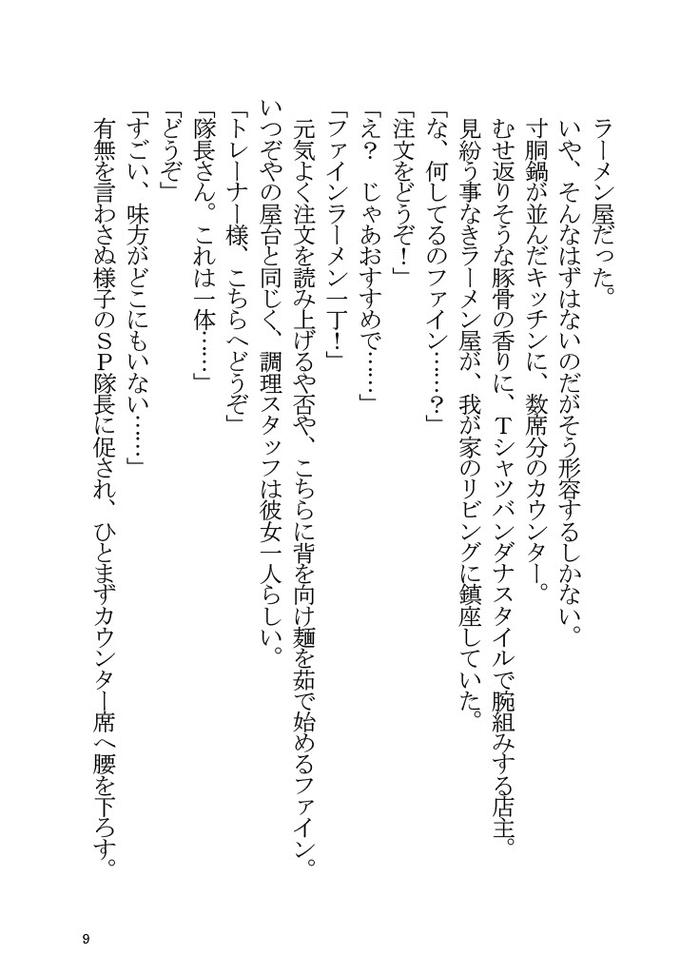 ラーメン屋だった。
いや、そんなはずはないのだがそう形容するしかない。
寸胴鍋が並んだキッチンに、数席分のカウンター。
むせ返りそうな豚骨の香りに、Ｔシャツバンダナスタイルで腕組みする店主。
見紛う事なきラーメン屋が、我が家のリビングに鎮座していた。
「な、何してるのファイン……？」
「注文をどうぞ！」
「え？　じゃあおすすめで……」
「ファインラーメン一丁！」
元気よく注文を読み上げるや否や、こちらに背を向け麺を茹で始めるファイン。
いつぞやの屋台と同じく、調理スタッフは彼女一人らしい。
「トレーナー様、こちらへどうぞ」
「隊長さん。これは一体……」
「どうぞ」
「すごい、味方がどこにもいない……」
有無を言わさぬ様子のＳＰ隊長に促され、ひとまずカウンター席へ腰を下ろす。
9